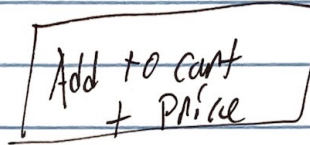 Add to cart
+ Price